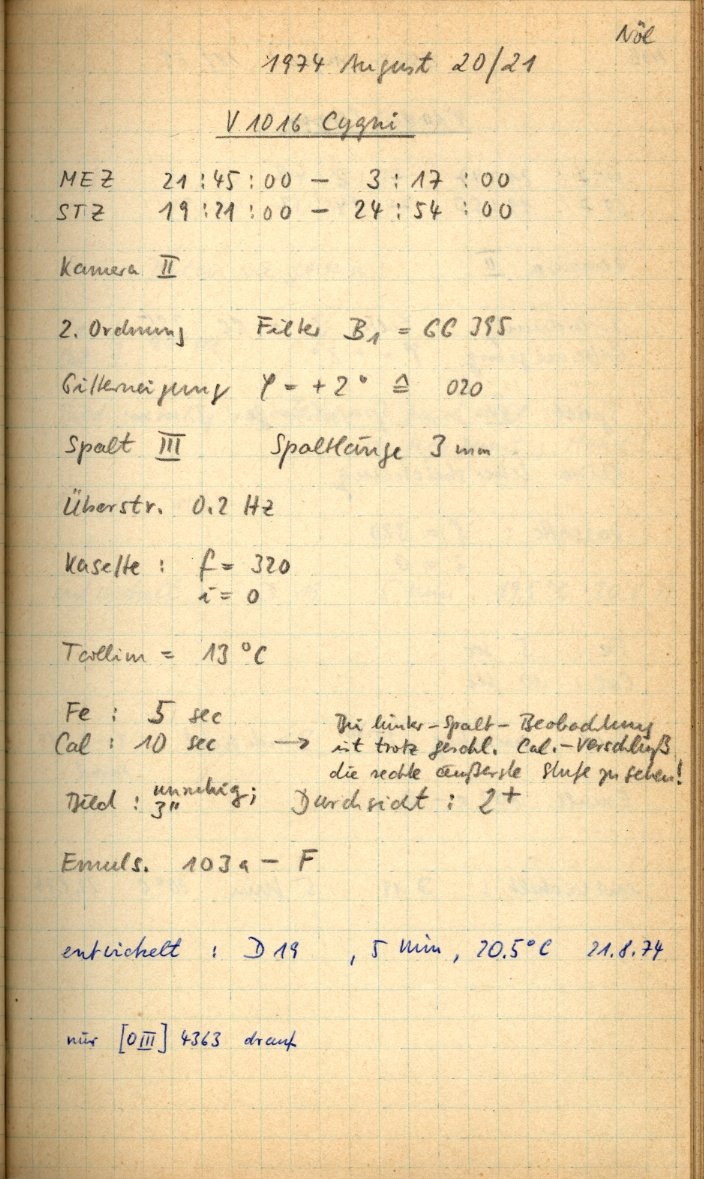 Nöl
1974 August 20/21
V 1016 Cygni
MEZ 21:45:00 – 3:17:00
STZ 19:21:00 – 24:54:00
Kamera II
2. Ordnung Filter B1 = GG 395
Gitterneigung φ = +2° ≙ 020
Spalt III Spaltlänge 3 mm
Überstr. 0.2 Hz
Kasette : f = 320
i = 0
Tcollim = 13 °C
Fe : 5 sec
Cal : 10 sec → Bei hinter-Spalt-Beobachtung
ist trotz geschl. Cal.-Verschluß
die rechte äußerste Stufe zu sehen!
Bild : unruhig; Durchsicht : 2+
3"
Emuls. 103a – F
entwickelt : D19 , 5 Min, 20.5°C 21.8.74
nur [OIII] 4363 drauf